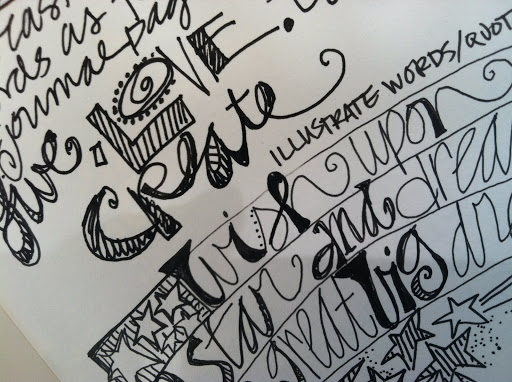 as
journal pag
live. LOVE.
create
ILLUSTRATE WORDS/QUOT
wish upon
star and drea
great big dre